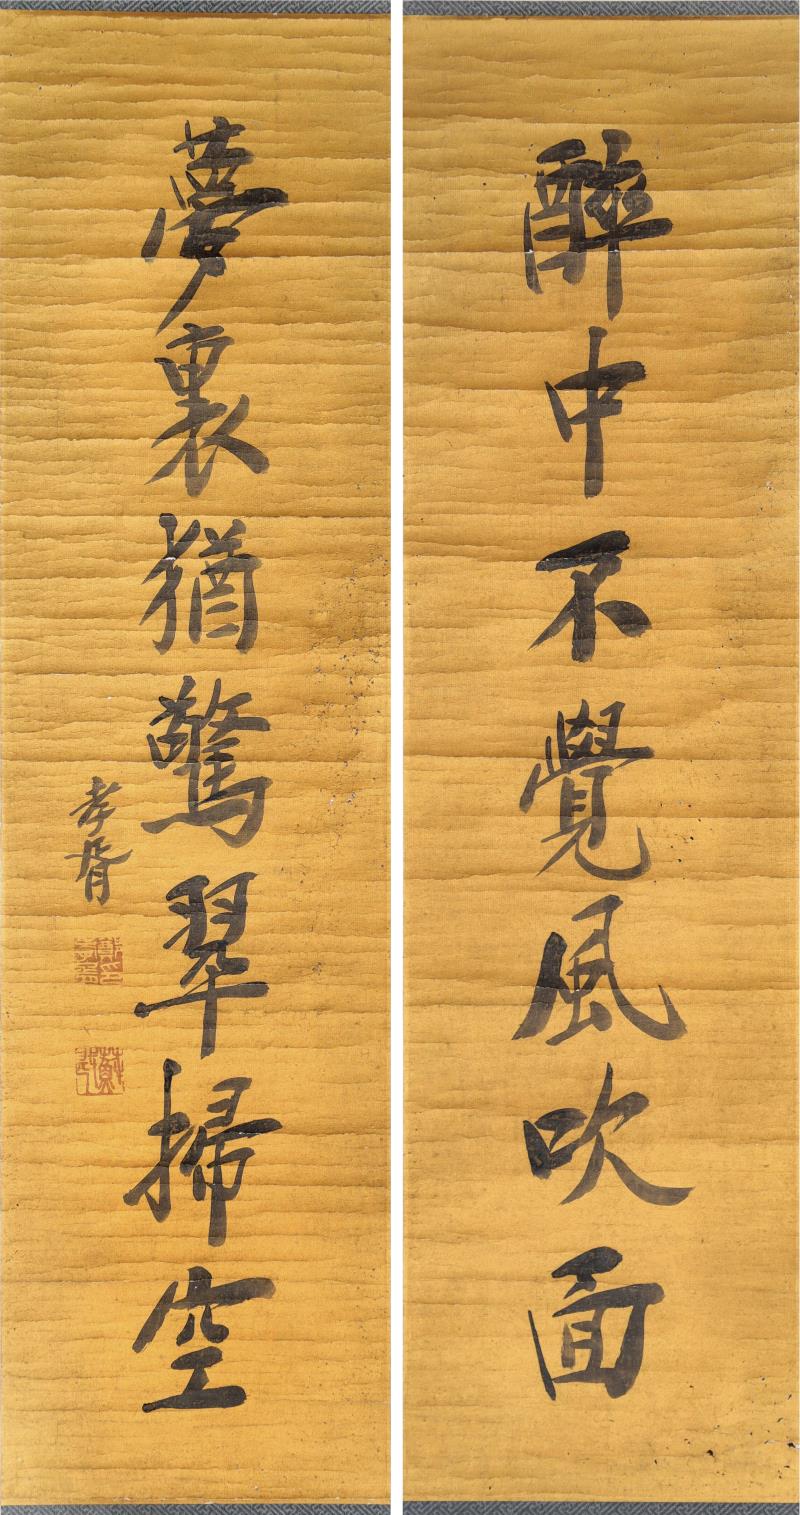 醉中不覺風吹面
夢裏猶驚翠掃空
孝胥